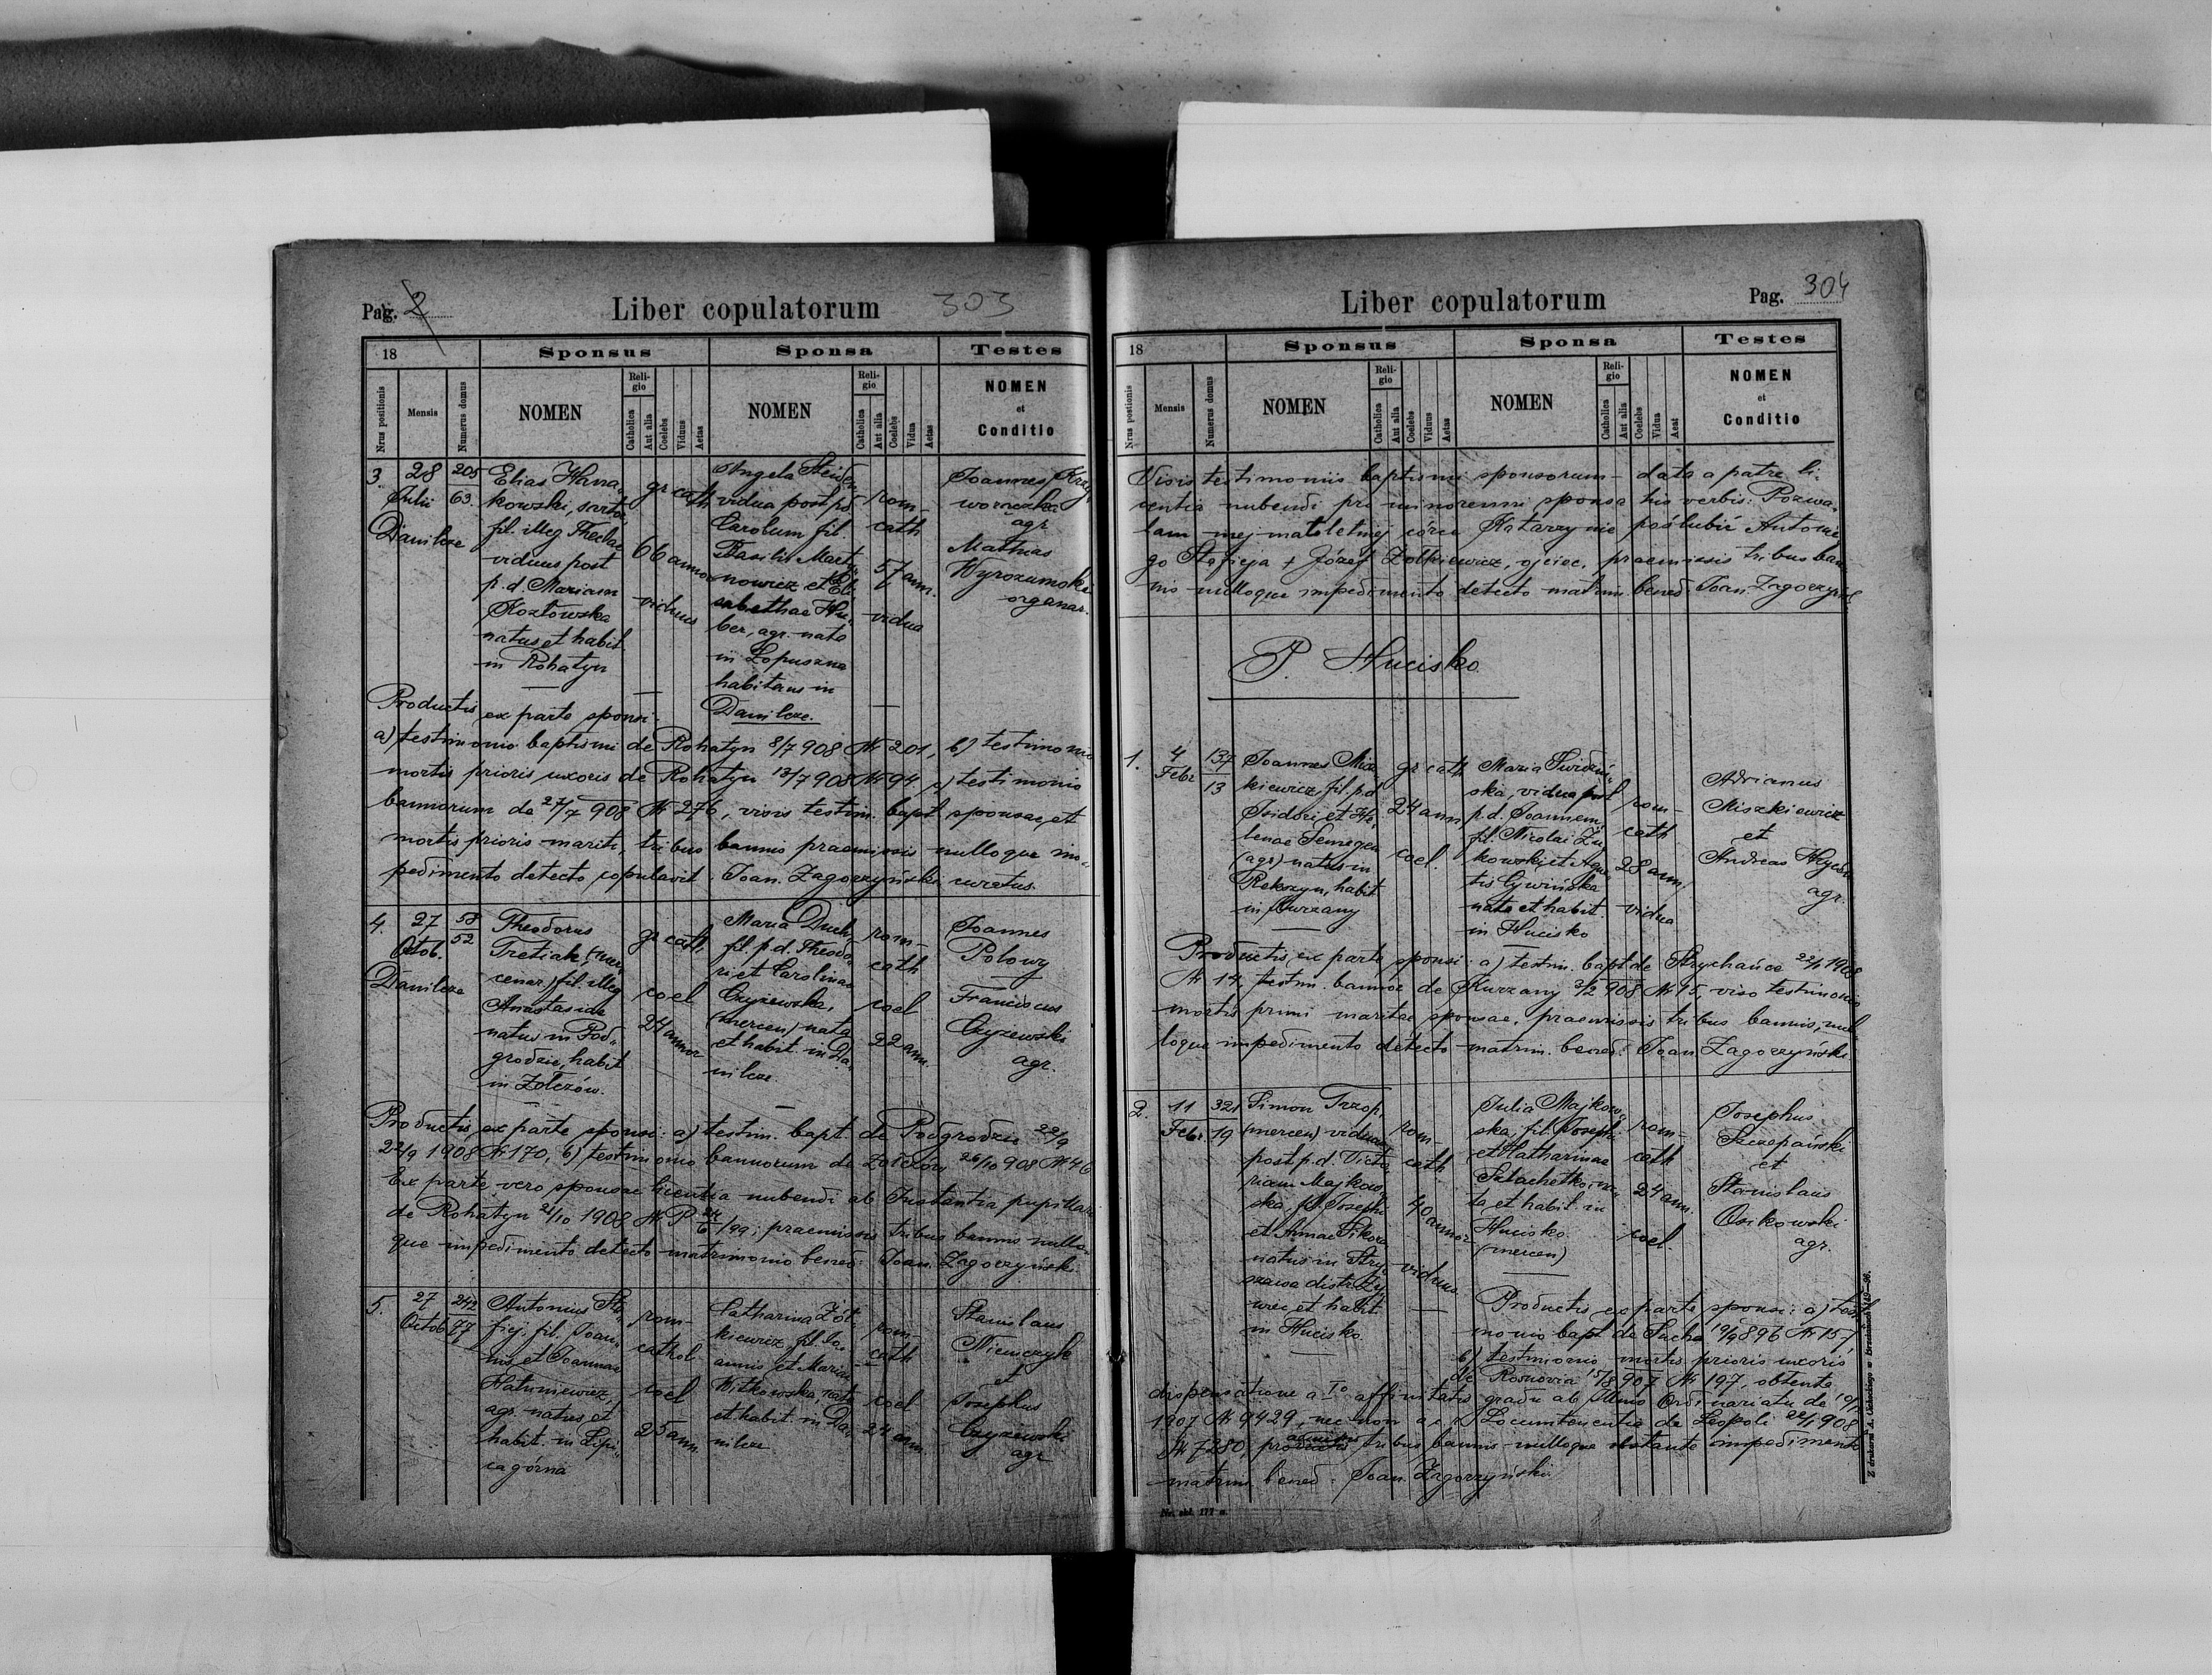 Pag. 2
Liber copulatorum
303
18
Sponsus
Sponsa
Testes
Nrus positionis
Mensis
Numerus domus
NOMEN
Religio
Catholica
Aut alia
Coelebs
Viduus
Aetas
NOMEN
Religio
Catholica
Aut alia
Coelebs
Vidua
Aetas
NOMEN
et
Conditio
3.
28
Julii
Danilcze
205
63.
Elias Hawra,
kowski, sartor
fil. illeg Theclae
viduus post
p. d. Mariam
Kozłowska
natus et habit
in Rohatyn
gr cath
66 annor
viduus
Angela
vidua post pd
Carolum fil.
Basilii Marty
nowicz et Eli
sabethae Hu
ber, agr. nata
in Łopuszna
habitans in
Danilcze.
rom-
cath
57 ann.
vidua
Joannes
woraczka
agr
Mathias
Wyrozumski
organar.
Productis ex parte sponsi
a) testimonio baptismi de Rohatyn 8/7 908 № 201, b) testimonio
mortis prioris uxoris de Rohatyn 13/7 908 № 94, c) testimonio
bannorum de 27/7 908 № 276, visis testim. bapt. sponsae, et
mortis prioris mariti, tribus bannis praemissis nulloque im,
pedimento detecto copulavit. Joan. Zagorzyński curatus.
4.
27
Octob.
Danilcze
58
52
Theodorus
Tretiak, (mer
cenar) fil. illeg
Anastasiae
natus in Pod,
grodzie, habit
in Żołczów.
gr cath.
coel
24 annor
Maria Duch
fil. p. d. Theodo
ri et Carolinae
Czyżewska,
(mercen) nata
et habit. in Da,
nilcze.
rom-
cath
coel
22 ann.
Joannes
Polowy
Franciscus
Czyżewski
agr.
Productis ex parte sponsi: a) testim. bapt. de Podgrodzie 22/9
22/9 1908 № 170, b) testimonio bannorum de Żołczów 26/10 908 № 46
Ex parte vero sponsae licentia nubendi ab Instantia pupillari
de Rohatyn 21/10 1908 № P 24/6/99; praemissis tribus bannis nullo
que impedimento detecto matrimonio bened: Joan. Zagorzyński.
5.
27
Octob
242
77
Antonius Ste,
fiej. fil. Joan,
nis et Joannae
Hatuniewicz,
agr. natus et
habit. in Lipi,
ca górna
rom-
cathol
coel
25 ann.
Catharina Żół
kiewicz, fil. Jo,
annis et Mariae
Witkowska, nata
et habit. in Da,
nilcze
rom-
cath
coel
24 ann.
Stanislaus
Niemczyk
et
Josephus
Czyżewski
agr
Liber copulatorum
Pag. 304
18
Sponsus
Sponsa
Testes
Nrus postionis
Mensis
Numerus domus
NOMEN
Religio
Catholica
Aut alia
Coelebs
Viduus
Aetas
NOMEN
Religio
Catholica
Aut alia
Coelebs
Vidua
Aeat
NOMEN
et
Conditio
Visis testimoniis baptismi sponsorum- data a patre li-
centia nubendi pro minorenni sponsa his verbis: Pozwa,
lam mej małoletniej córce Katarzynie poślubić Antonie
go Stefieja + Józef Żołkiewicz, ojciec, praemissis tribus ban
nis nulloque impedimento detecto matrim. bened. Joan. Zagorzyński
P. Hucisko
1.
4
Febr
137
13
Joannes Misz
kiewicz, fil. p.d
Isidori et He,
lenae Semegen
(agr) natus in
Rekszyn, habit
in Kurzany
gr cath
24 ann
coel.
Maria Świdziń,
ska, vidua post
p.d. Joannem,
fil. Nicolai Żu
kowski et Agne
tis Cywińska
nata et habit.
in Hucisko
rom-
cath
28 ann,
vidua
Adrianus
Miszkiewicz
et
Andreas
agr.
Productis ex parte sponsi a) testim. bapt de Stryhańce 22/1 1908
№ 14, testim. bannor de Kurzany 2/2 908 № 15, viso testimonio
mortis primi mariti sponsae, praemissis tribus bannis, nul
loque impedimento detecto matrim. bened: Joan. Zagorzyński.
2.
11
Febr.
321
19
Simon Trzop,
(mercen) viduus
post p. d. Victo
riam Majkow,
ska, fil. Josephi
et Annae Sikora
natus in Stry
szawa distr. Ży,
wiec et habit
in Hucisko
rom-
cath
40 annor
viduus
Julia Majkow,
ska, fil. Josephi
et Catharinae
Sztachetko, na,
ta et habit in
Hucisko
(mercen)
rom-
cath
24 ann.
coel.
Josephus
Szczepański
et
Stanislaus
Osikowski
agr.
Productis ex parte sponsi: a) testi
monio bapt de Sucha 19/9 896 № 157,
b) testimonio mortis prioris uxoris
de 15/8 907 № 197, obtenta
dispensatione a I° affinitatis gradu ab Illmo Ordinariatu de
1907 № 9429, nec non a c. r. Locumtenentia de Leopoli 22/1 908
№ 7280, praemissis tribus bannis nulloque obstante impedimento
matrim. bened: Joan. Zagorzyński.
Nr. skł. 177 a.